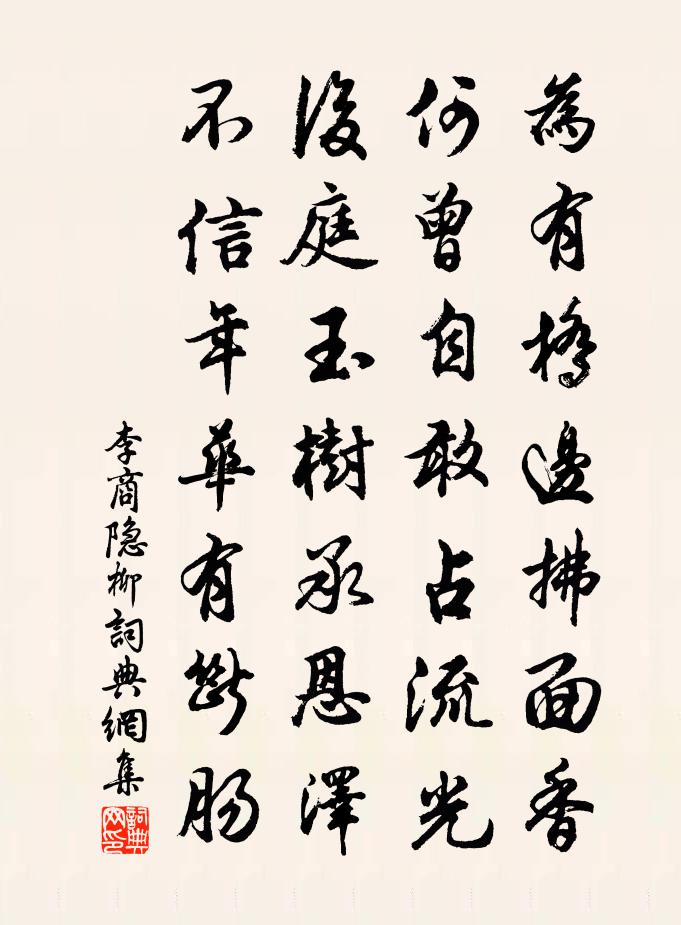 為有橋邊拂面香
何曾自敢占流光
後庭玉樹承恩澤
不信年華有斷腸
李商隐柳詞典網集
詞典網印